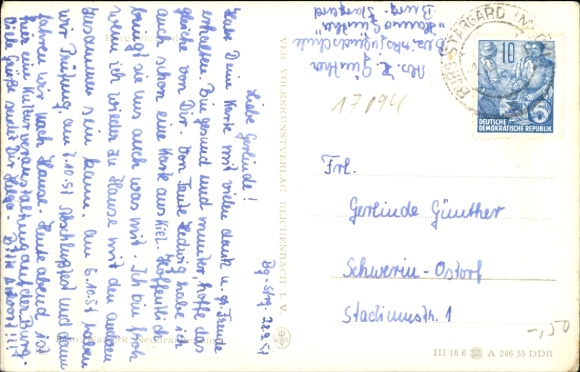 Bg-Strg. 22.9.51
Liebe Gerlinde!
Habe Deine Karte mit vielen Dank u. gr. Freude
erhalten. Bin gesund und munter, hoffe das
gleiche von Dir. Von Tante Hedwig habe ich
auch schon eine Karte aus Kiel. Hoffentlich
bringt sie uns auch was mit. Ich bin froh
wenn ich wieder zu Hause mit den anderen
zusammen sein kann. Am 6.10.51 haben
wir Prüfung, am 7.10.51 Abschlußfest und dann
fahren wir nach Hause. Heute abend ist
hier eine Kulturveranstaltung auf der Burg.
Viele Grüße sendet Dir Helga. Bitte Antwort!!!
VEB VOLKSKUNSTVERLAG REICHENBACH I. V.
Abs. H. Günther
Bezirksjugendschule
"Hanno Günther"
Burg Stargard
17094
BURG STARGARD
10
DEUTSCHE
DEMOKRATISCHE REPUBLIK
Frl.
Gerlinde Günther
Schwerin-Ostorf
Stadiumstr. 1
-,50
III 18 6 A 246 55 DDR